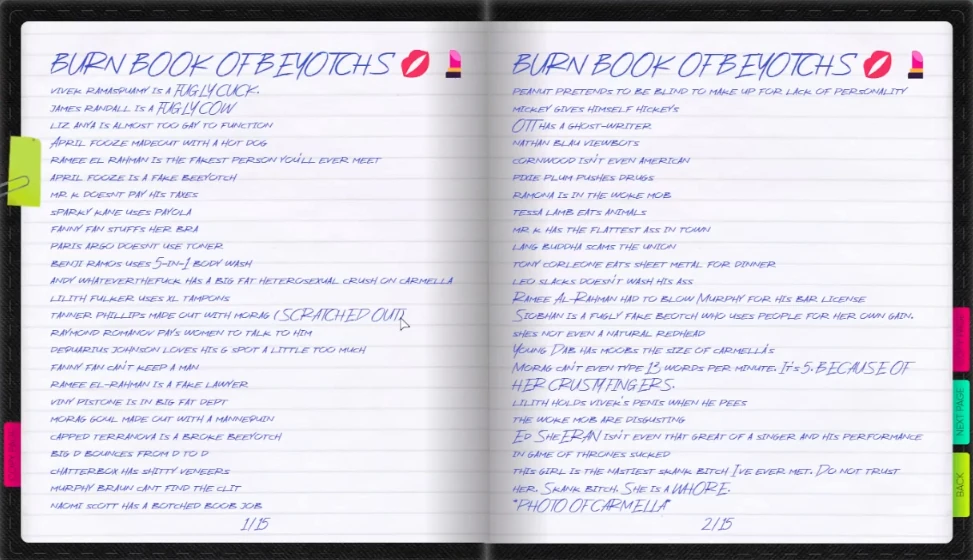 BURN BOOK OF BEYOTCHS 💋 💄
VIVEK RAMASPUAMY IS A FUGLY CUCK.
JAMES RANDALL IS A FUGLY COW
LIZ ANYA IS ALMOST TOO GAY TO FUNCTION
APRIL FOOZE MADEOUT WITH A HOT DOG
RAMEE EL RAHMAN IS THE FAKEST PERSON YOU'LL EVER MEET
APRIL FOOZE IS A FAKE BEEYOTCH
MR. K DOESNT PAY HIS TAXES
SPARKY KANE USES PAYOLA
FANNY FAN STUFFS HER BRA
PARIS ARGO DOESNT USE TONER
BENJI RAMOS USES 5-IN-1 BODY WASH
ANDY WHATEVERTHEFUCK HAS A BIG FAT HETEROSEXUAL CRUSH ON CARMELLA
LILITH FULKER USES XL TAMPONS
TANNER PHILLIPS MADE OUT WITH MORAG (SCRATCHED OUT)
RAYMOND ROMANOV PAYS WOMEN TO TALK TO HIM
DEQUARIUS JOHNSON LOVES HIS G SPOT A LITTLE TOO MUCH
FANNY FAN CAN'T KEEP A MAN
RAMEE EL-RAHMAN IS A FAKE LAWYER
VINY PISTONE IS IN BIG FAT DEPT
MORAG GOUL MADE OUT WITH A MANNEQUIN
CAPPED TERRANOVA IS A BROKE BEEYOTCH
BIG D BOUNCES FROM D TO D
CHATTERBOX HAS SHITTY VENEERS
MURPHY BRAUN CANT FIND THE CLIT
NAOMI SCOTT HAS A BOTCHED BOOB JOB
1/15
BURN BOOK OF BEYOTCHS 💋 💄
PEANUT PRETENDS TO BE BLIND TO MAKE UP FOR LACK OF PERSONALITY
MICKEY GIVES HIMSELF HICKEYS
OTT HAS A GHOST-WRITER
NATHAN BLAU VIEWBOTS
CORNWOOD ISN'T EVEN AMERICAN
PIXIE PLUM PUSHES DRUGS
RAMONA IS IN THE WOKE MOB
TESSA LAMB EATS ANIMALS
MR. K HAS THE FLATTEST ASS IN TOWN
LANG BUDDHA SCAMS THE UNION
TONY CORLEONE EATS SHEET METAL FOR DINNER
LEO SLACKS DOESN'T WASH HIS ASS
RAMEE AL-RAHMAN HAD TO BLOW MURPHY FOR HIS BAR LICENSE
SIOBHAN IS A FUGLY FAKE BEOTCH WHO USES PEOPLE FOR HER OWN GAIN.
SHES NOT EVEN A NATURAL REDHEAD
YOUNG DAB HAS MOOBS THE SIZE OF CARMELLA'S
MORAG CAN'T EVEN TYPE 13 WORDS PER MINUTE. IT'S 5. BECAUSE OF
HER CRUSTY FINGERS.
LILITH HOLDS VIVEK'S PENIS WHEN HE PEES
THE WOKE MOB ARE DISGUSTING
ED SHEERAN ISN'T EVEN THAT GREAT OF A SINGER AND HIS PERFORMANCE
IN GAME OF THRONES SUCKED
THIS GIRL IS THE NASTIEST SKANK BITCH I'VE EVER MET. DO NOT TRUST
HER. SKANK BITCH. SHE IS A WHORE.
*PHOTO OF CARMELLA*
2/15
NEXT PAGE
BACK